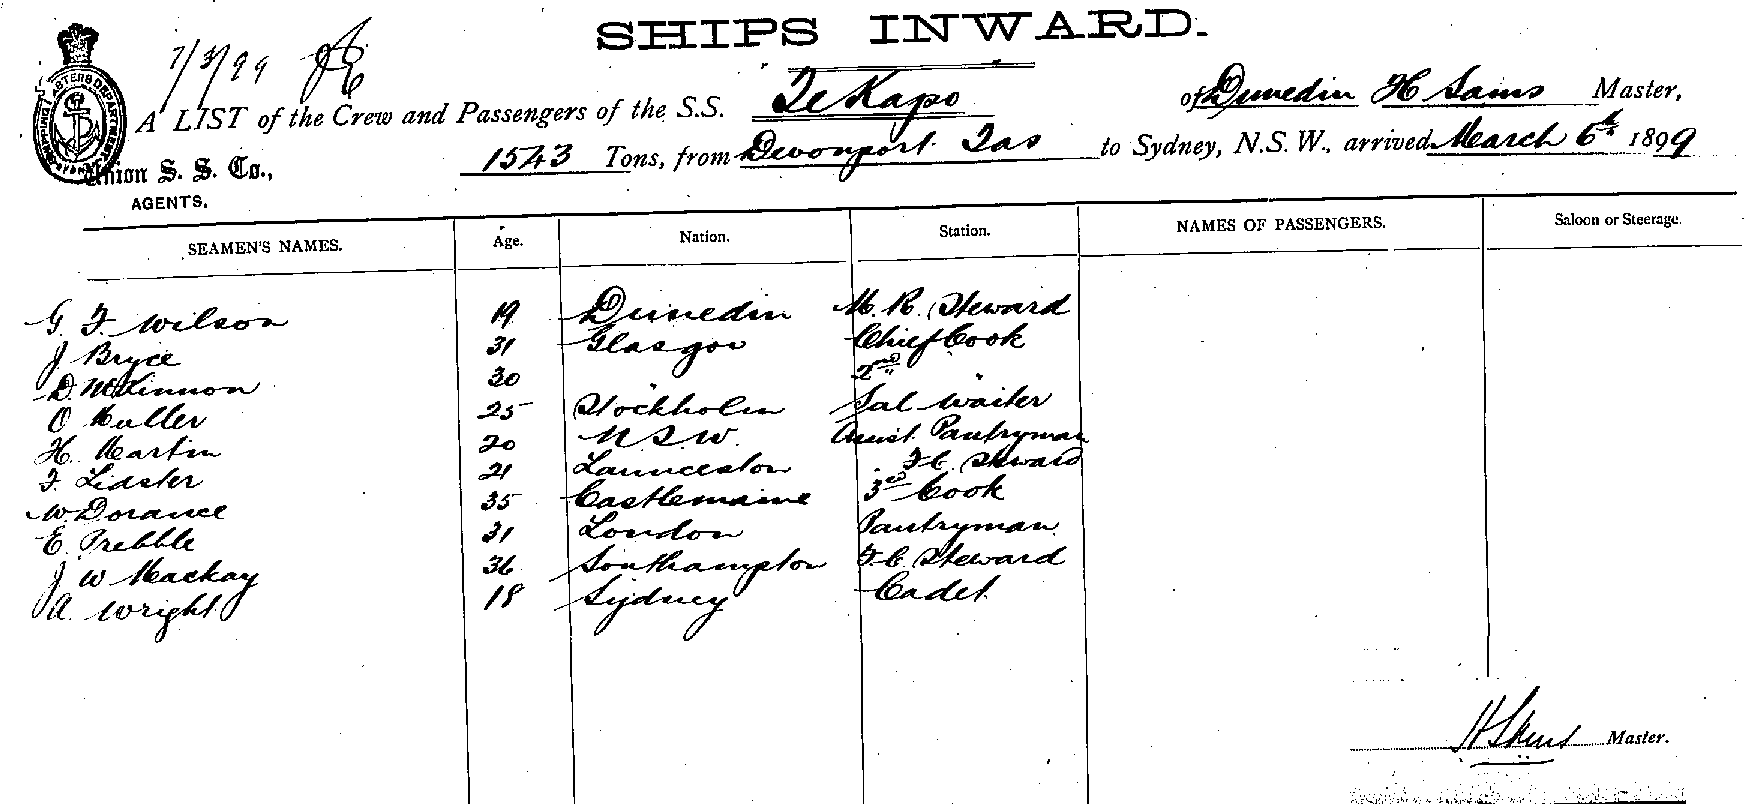 SHIPS INWARD.
7/3/99
A LIST of the Crew and Passengers of the S.S. TeKapo of Dunedin H Sams Master,
1543 Tons, from Devonport Tas to Sydney, N.S.W., arrived March 6th 1899
Union S. S. Co.,
AGENTS.
SEAMEN'S NAMES. Age. Nation. Station. NAMES OF PASSENGERS. Saloon or Steerage.
G. F. Wilson 19 Dunedin M. R. Steward
J Bryce 31 Glasgow Chief Cook
D. McKinnon 30 2nd "
O Muller 25 Stockholm Sal Waiter
H. Martin 20 N S W. Assist. Pantryman
F. Lidster 21 Launceston F. C. Steward
W Dorance 35 Castlemaine 3rd Cook
E. Prebble 31 London Pantryman
J W Mackay 36 Southampton F. C. Steward
A. Wright 18 Sydney Cadet
H Sams Master.